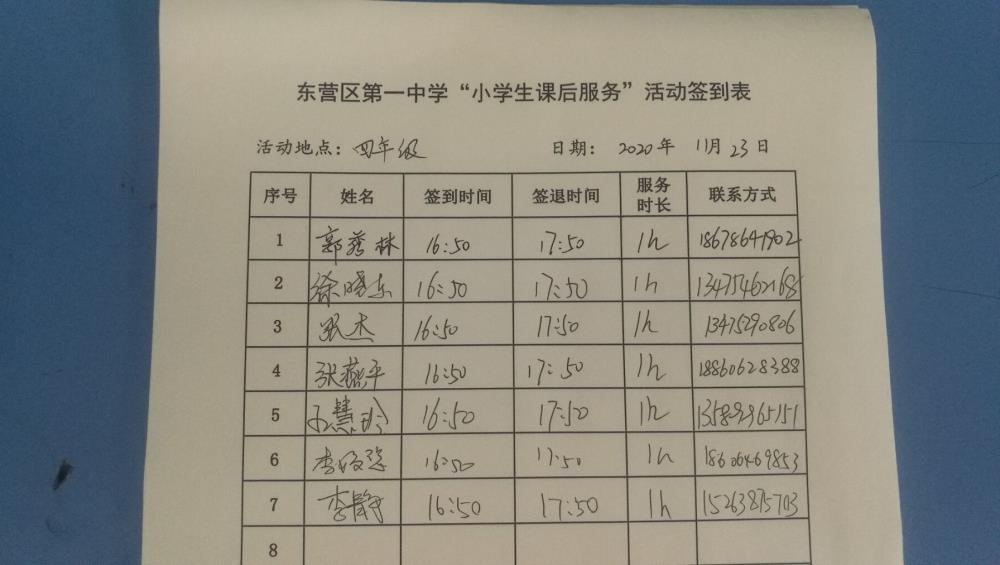 东营区第一中学“小学生课后服务”活动签到表
活动地点：四年级 日期： 2020 年 11月 23 日
序号 姓名 签到时间 签退时间 服务时长 联系方式
1 郭秀林 16:50 17:50 1h 18678641902
2 徐晓东 16:50 17:50 1h 13475462168
3 张杰 16:50 17:50 1h 13475290806
4 张燕平 16:50 17:50 1h 18860628388
5 孙慧玲 16:50 17:50 1h 13589965151
6 李 16:50 17:50 1h 18606469853
7 李静 16:50 17:50 1h 15263875703
8